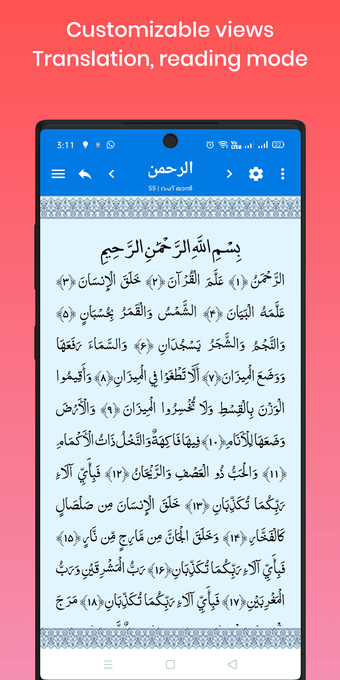 Customizable views
Translation, reading mode
3:11
الرحمن
55 | റഹ് മാൻ
بِسْمِ اللَّهِ الرَّحْمَٰنِ الرَّحِيمِ
الرَّحْمَٰنُ ﴿١﴾ عَلَّمَ الْقُرْآنَ ﴿٢﴾ خَلَقَ الْإِنسَانَ ﴿٣﴾
عَلَّمَهُ الْبَيَانَ ﴿٤﴾ الشَّمْسُ وَالْقَمَرُ بِحُسْبَانٍ ﴿٥﴾
وَالنَّجْمُ وَالشَّجَرُ يَسْجُدَانِ ﴿٦﴾ وَالسَّمَاءَ رَفَعَهَا
وَوَضَعَ الْمِيزَانَ ﴿٧﴾ أَلَّا تَطْغَوْا فِي الْمِيزَانِ ﴿٨﴾ وَأَقِيمُوا
الْوَزْنَ بِالْقِسْطِ وَلَا تُخْسِرُوا الْمِيزَانَ ﴿٩﴾ وَالْأَرْضَ
وَضَعَهَا لِلْأَنَامِ ﴿١٠﴾ فِيهَا فَاكِهَةٌ وَالنَّخْلُ ذَاتُ الْأَكْمَامِ
﴿١١﴾ وَالْحَبُّ ذُو الْعَصْفِ وَالرَّيْحَانُ ﴿١٢﴾ فَبِأَيِّ آلَاءِ
رَبِّكُمَا تُكَذِّبَانِ ﴿١٣﴾ خَلَقَ الْإِنسَانَ مِن صَلْصَالٍ
كَالْفَخَّارِ ﴿١٤﴾ وَخَلَقَ الْجَانَّ مِن مَّارِجٍ مِّن نَّارٍ ﴿١٥﴾
فَبِأَيِّ آلَاءِ رَبِّكُمَا تُكَذِّبَانِ ﴿١٦﴾ رَبُّ الْمَشْرِقَيْنِ وَرَبُّ
الْمَغْرِبَيْنِ ﴿١٧﴾ فَبِأَيِّ آلَاءِ رَبِّكُمَا تُكَذِّبَانِ ﴿١٨﴾ مَرَجَ